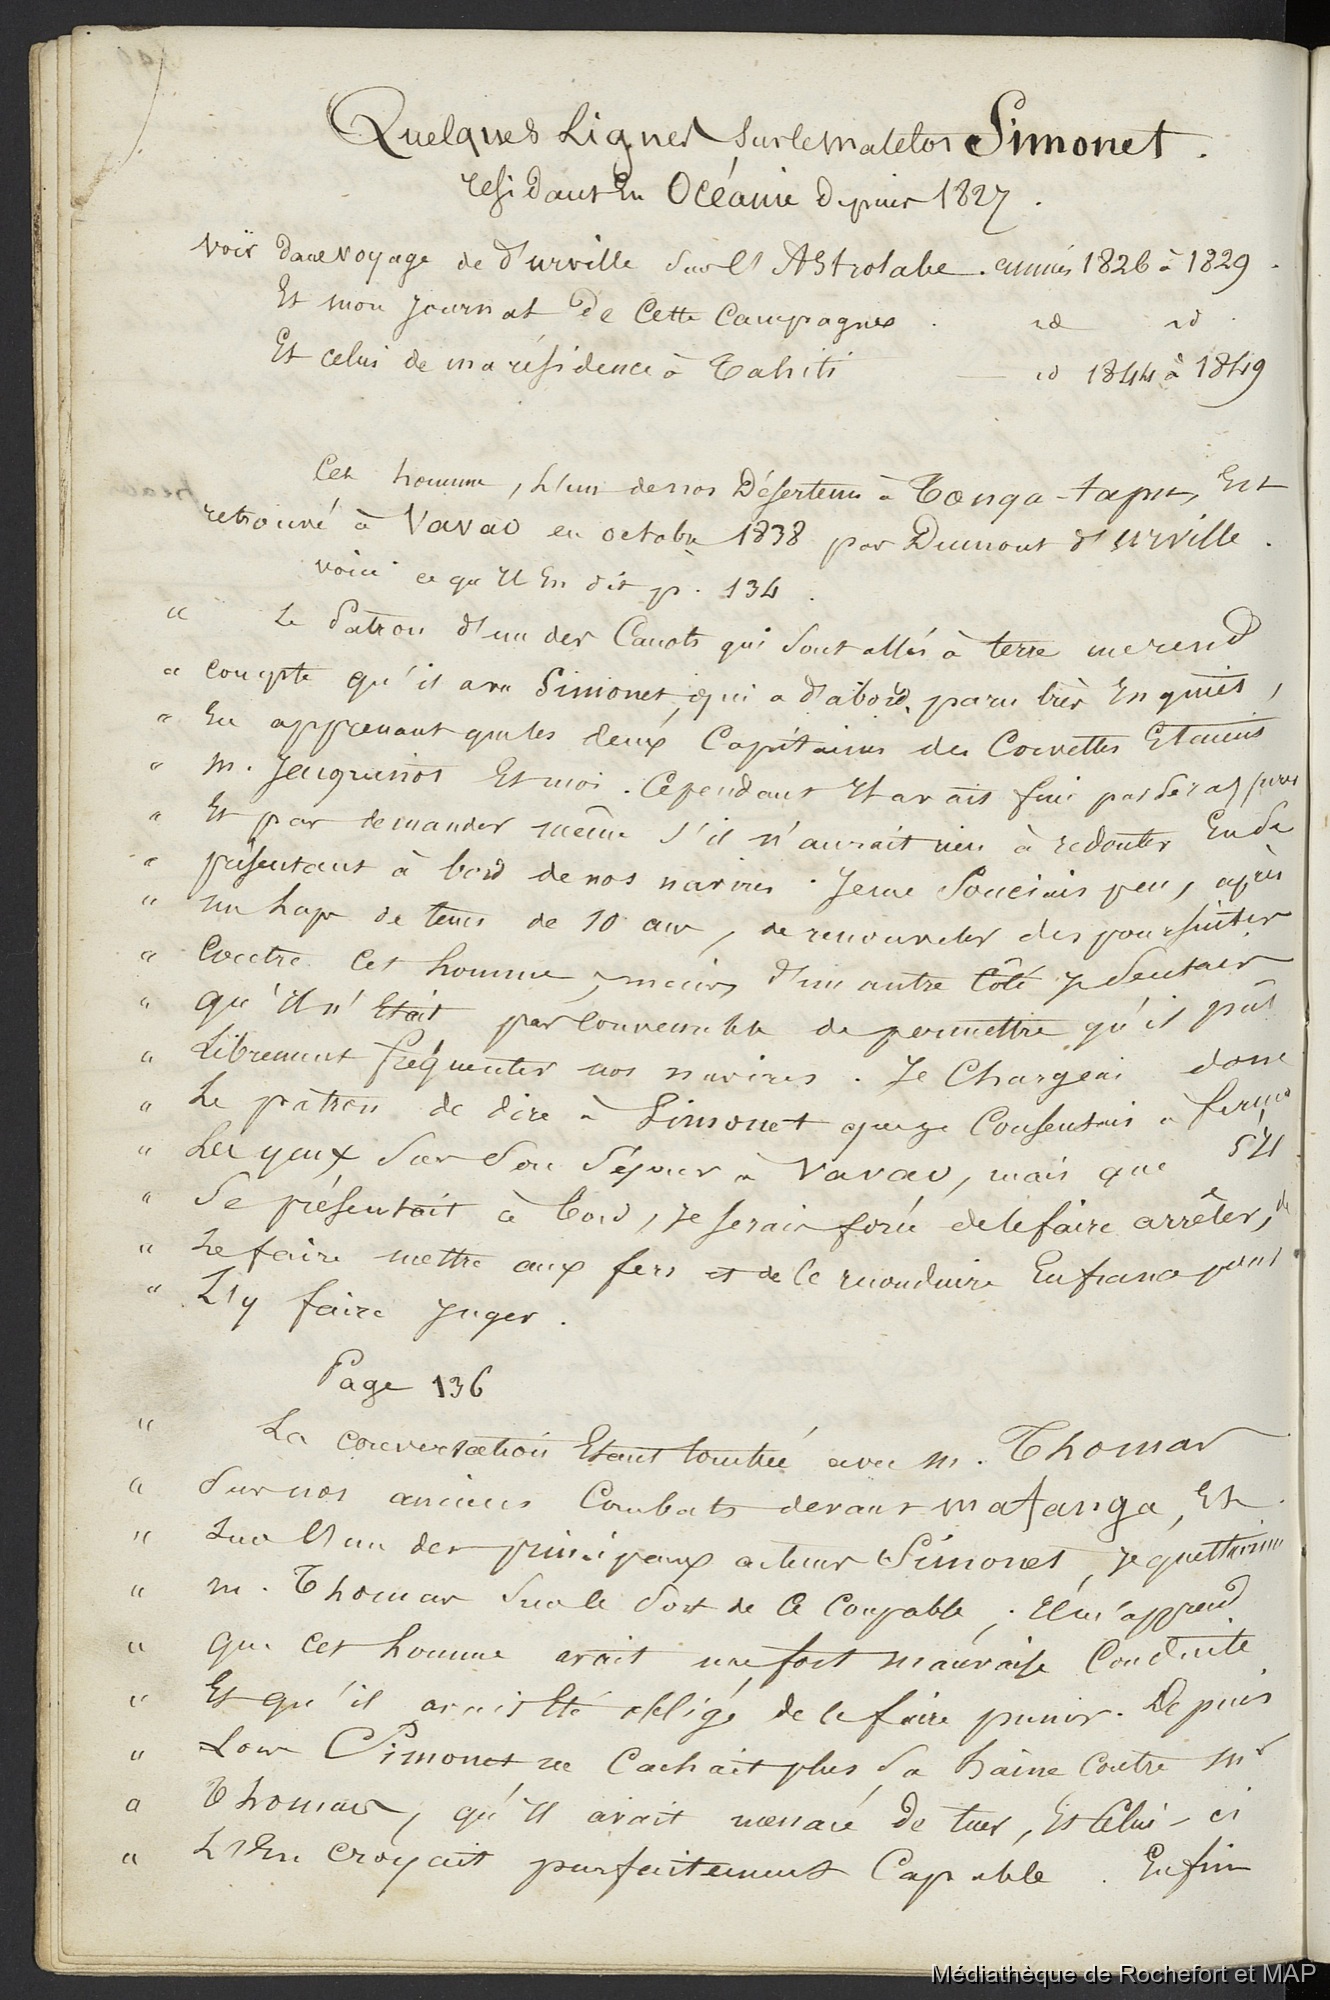 Quelques Lignes sur le matelot Simonet.
résidant En Océanie Depuis 1827.
voir dans voyage de d'urville sur l'Astrolabe. années 1826 à 1829.
Et mon Journal de Cette Campagne . id id.
Et celui de ma résidence à Tahiti — id 1844 à 1849
Cet homme, L'un de nos Déserteurs à Tonga-tapu, Est
retrouvé à Vavao en octobre 1838 par Dumont d'urville.
voici ce qu'Il En dit p. 134.
" Le Patron d'un des Canots qui sont allés à terre me rend
" compte qu'il a vu Simonet, qui a d'abord paru très Inquiet,
" En apprenant que les deux Capitaines des Corvettes Etaient
" M. Jacquinot Et moi. Cependant Il avait fini par se rassurer
" Et par demander même s'il n'aurait rien à redouter En se
" présentant à bord de nos navires. Je me Souciais peu, après
" un laps de tems de 10 ans, de renouveler des poursuites
" Contre Cet homme, mais, d'un autre Côté je sentais
" qu'Il n'Etait pas Convenable de permettre qu'il pût
" Librement fréquenter nos navires. Je Chargeai donc
" Le patron de dire à Simonet que je Consentais à fermer
" Les yeux sur son séjour à Vavao, mais que s'Il
" se présentait à bord, Je serais forcé de le faire arrêter, de
" Le faire mettre aux fers et de le reconduire En france pour
" L'y faire Juger.
Page 136
" La conversation Etant tombée avec M. Thomas
" sur nos anciens Combats devant Mafanga, Et
" sur l'un des principaux acteurs Simonet, Je questionnai
" M. Thomas sur le sort de Ce Coupable; Il m'apprend
" que Cet homme avait une fort mauvaise Conduite
" Et qu'il avait Eté obligé de le faire punir. Depuis
" Lors Simonet ne Cachait plus sa haine Contre Mr
" Thomas, qu'Il avait menacé de tuer, Et Celui-ci
" L'En croyait parfaitement Capable. Enfin
Médiathèque de Rochefort et MAP